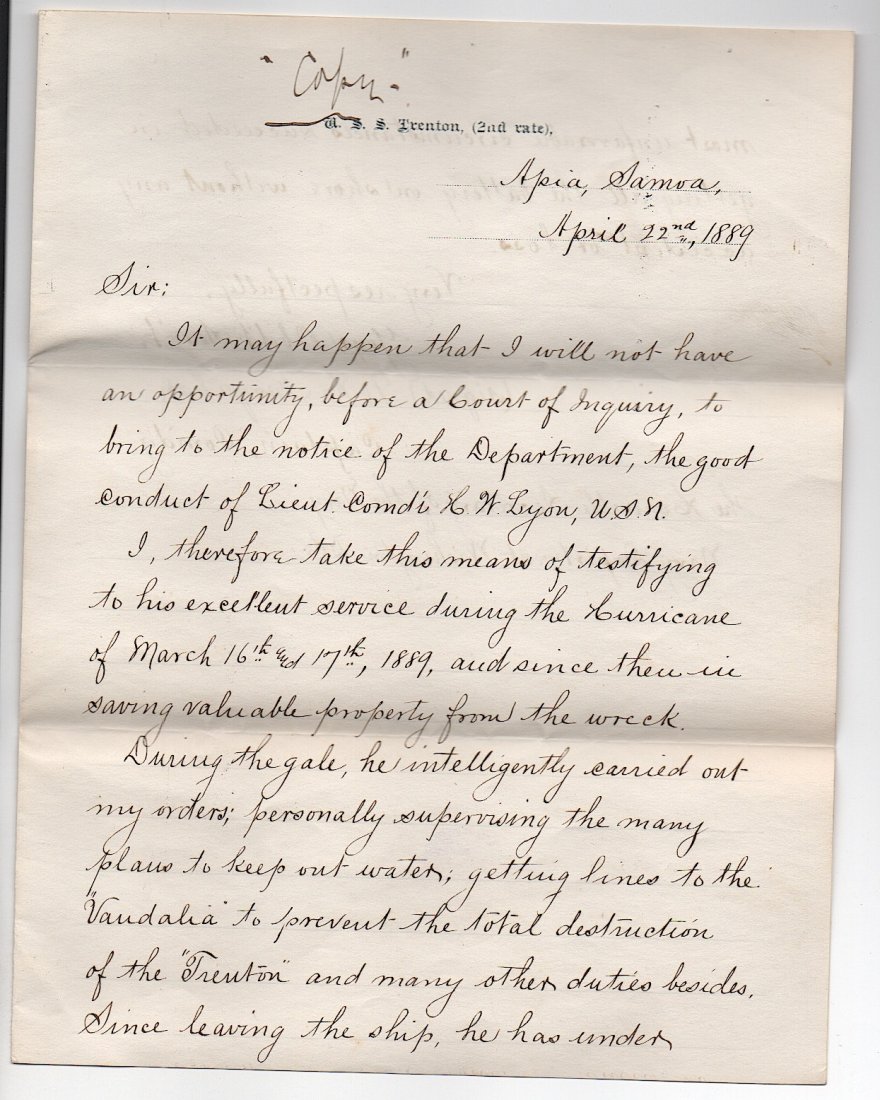 "Copy."
U. S. S. Trenton, (2nd rate),
Apia, Samoa,
April 22nd, 1889
Sir:
It may happen that I will not have
an opportunity, before a Court of Inquiry, to
bring to the notice of the Department, the good
conduct of Lieut. Comd'r H. W. Lyon, U.S.N.
I, therefore take this means of testifying
to his excellent service during the Hurricane
of March 16th and 17th, 1889, and since then in
saving valuable property from the wreck.
During the gale, he intelligently carried out
my orders; personally supervising the many
plans to keep out water; getting lines to the
"Vandalia" to prevent the total destruction
of the "Trenton" and many other duties besides.
Since leaving the ship, he has under